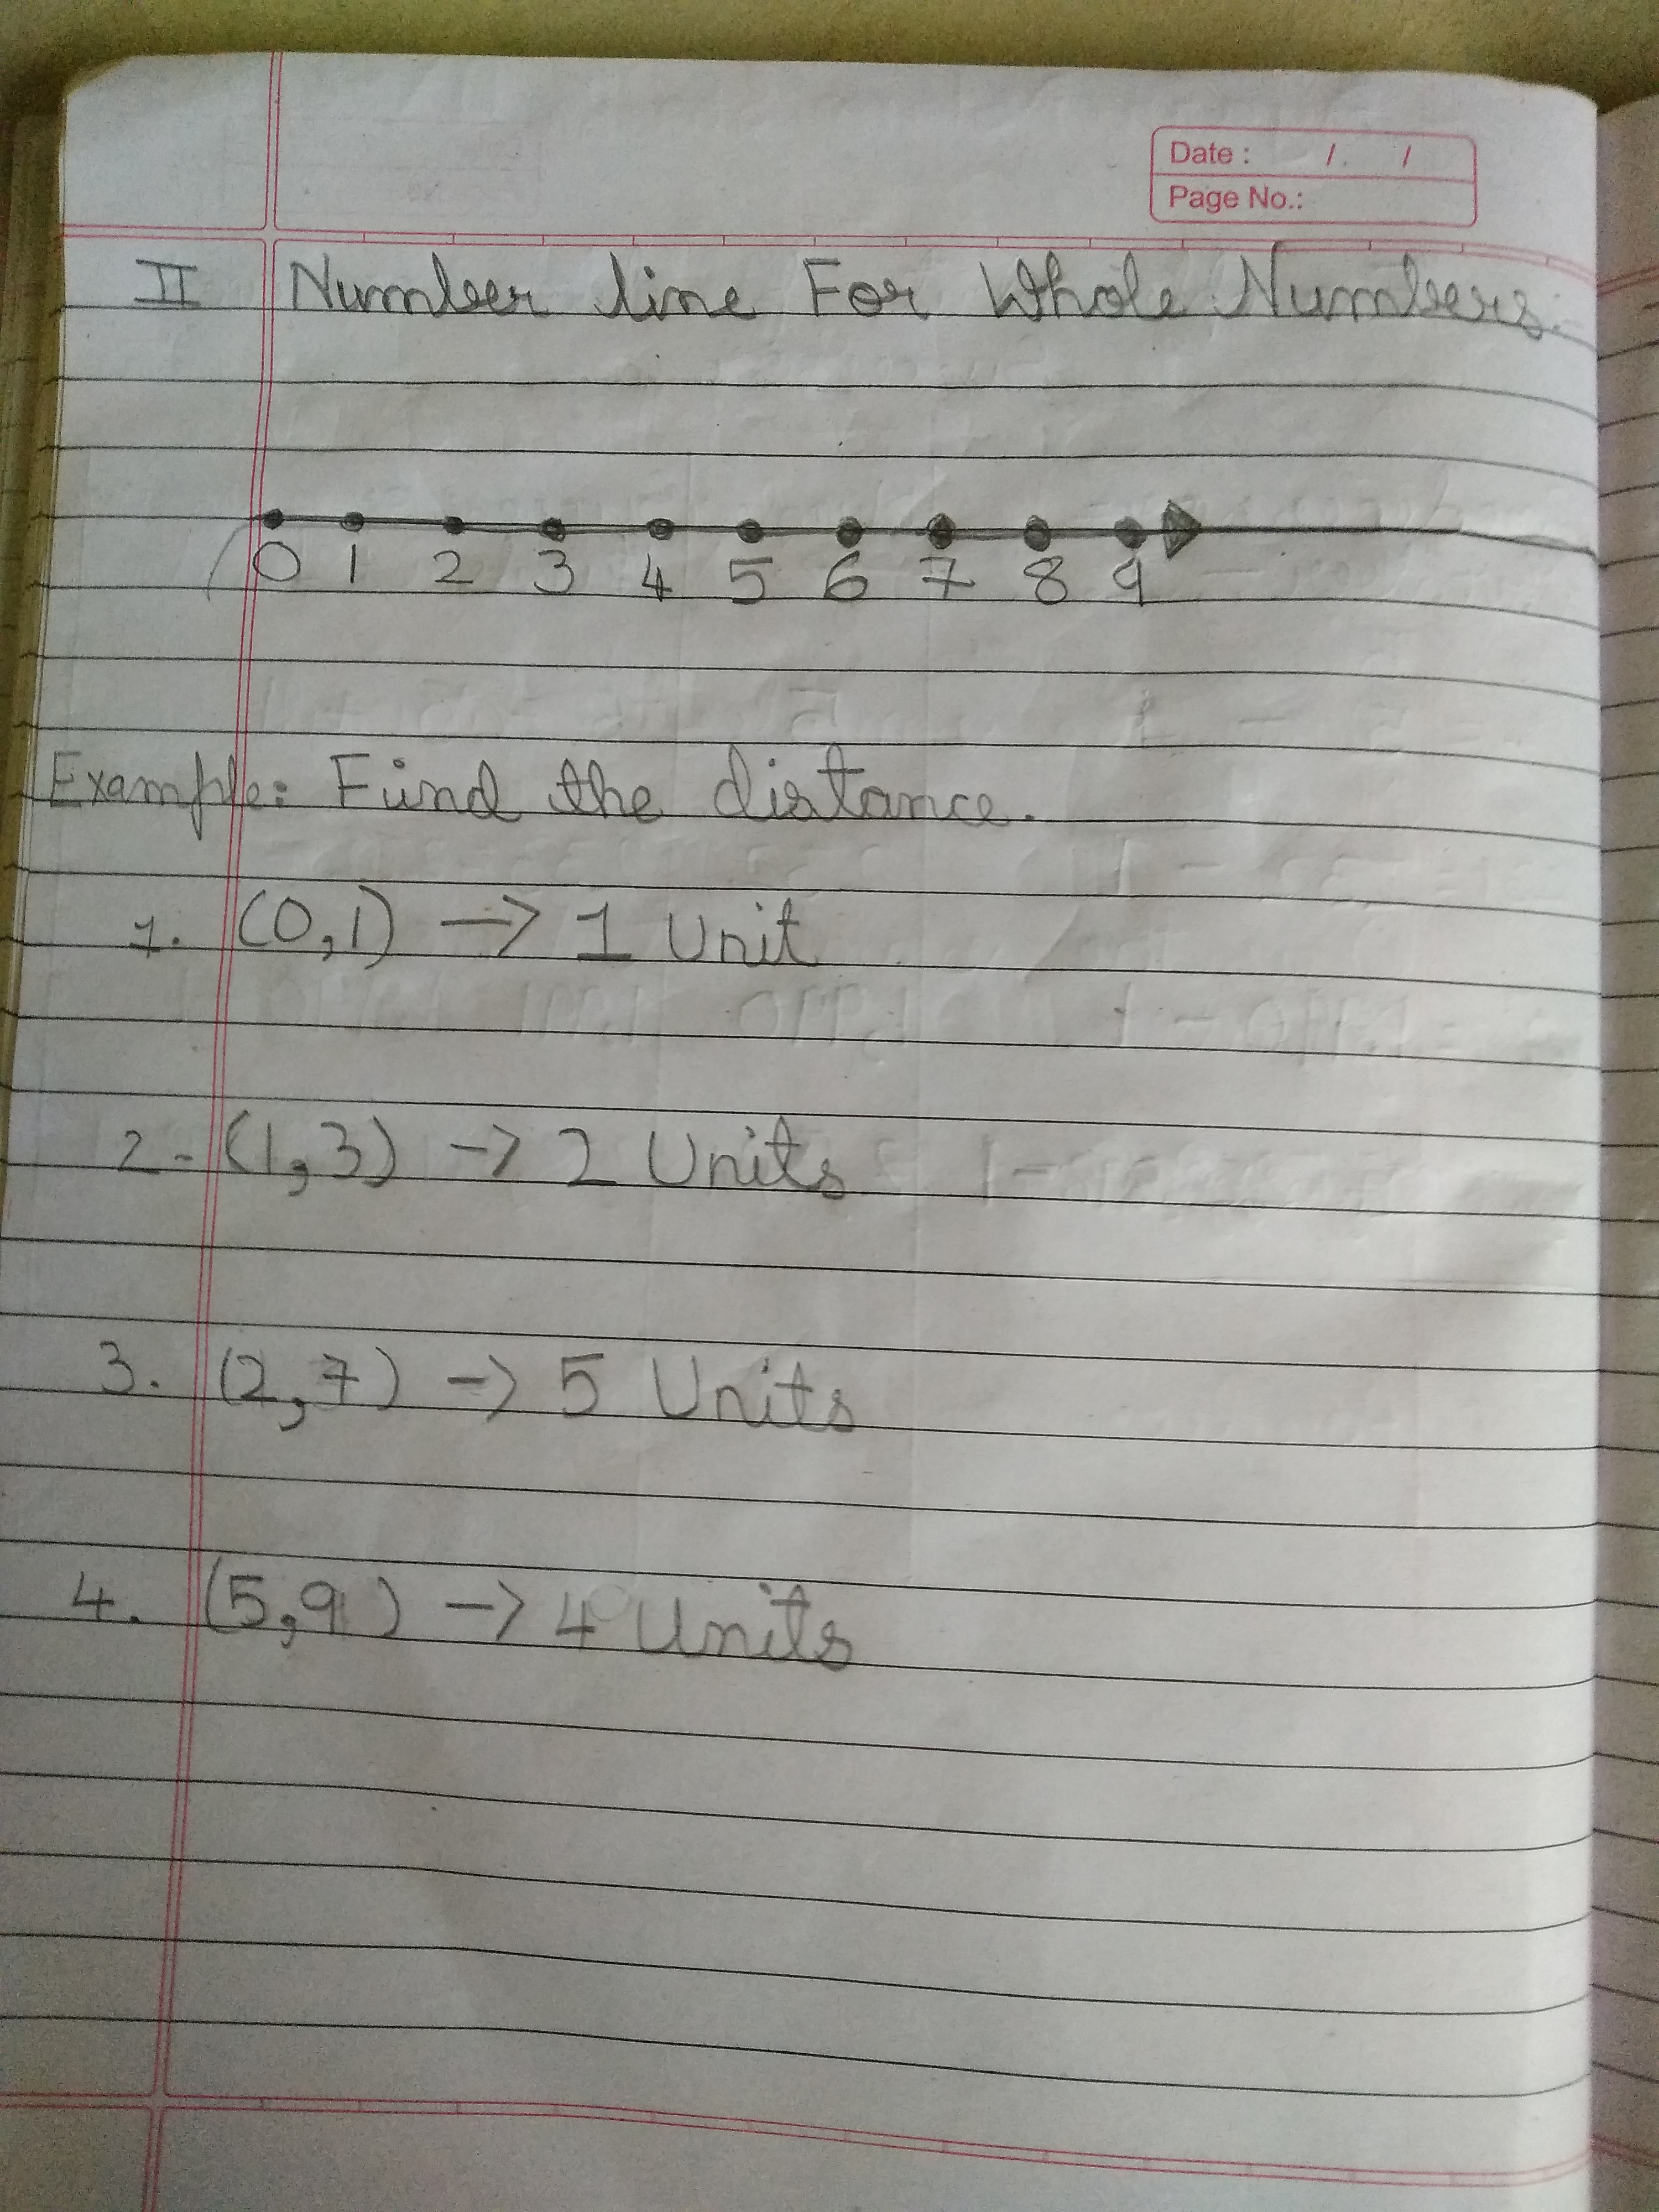 Date : / . /
Page No.:
II Number line For Whole Numbers.
0 1 2 3 4 5 6 7 8 9
Example: Find the distance.
1. (0,1) -> 1 Unit
2. (1,3) -> 2 Units
3. (2,7) -> 5 Units
4. (5,9) -> 4 Units